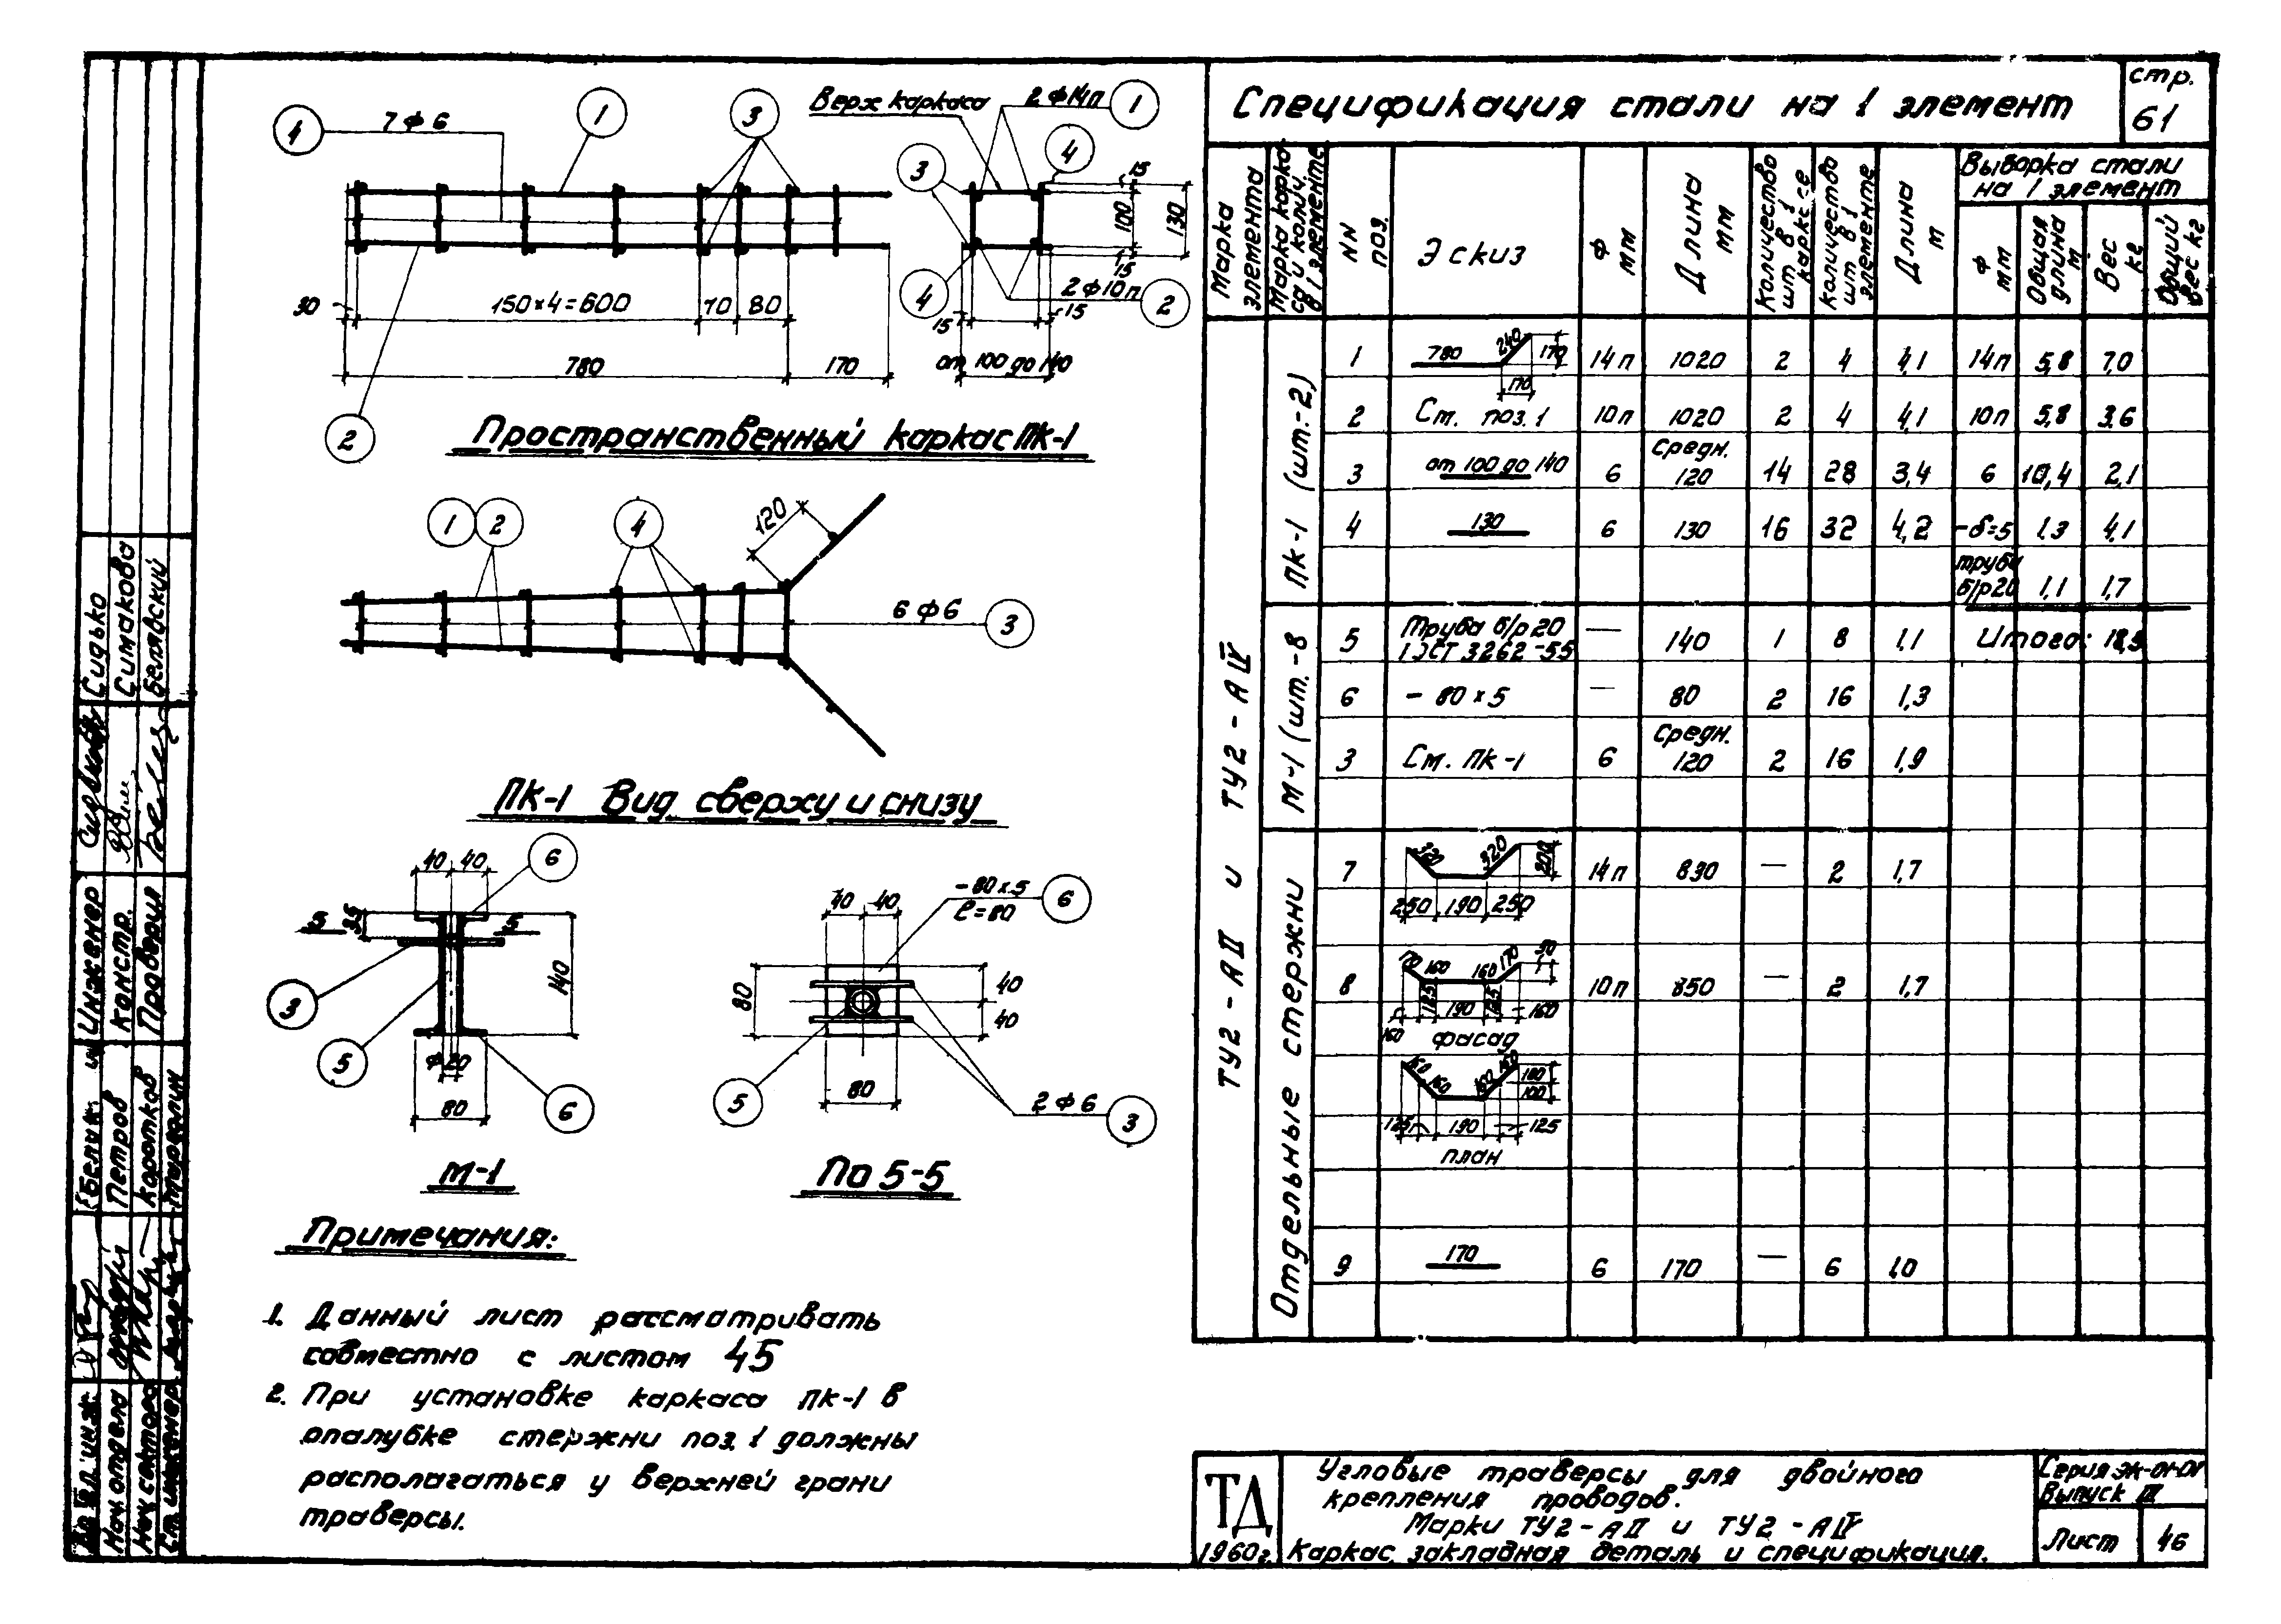 4
7ф6
1
3
Верх каркаса
2ф14п
1
3
4
15
100
130
15
4
2ф10п
2
15
15
30
150×4=600
70
80
780
170
от 100 до 140
2
Пространственный каркас ПК-1
1
2
4
120
6ф6
3
ПК-1 Вид сверху и снизу
40
40
6
5
35
5
3
140
5
ф20
80
6
М-1
40
40
-80×5
ℓ=80
6
80
40
40
5
80
2ф6
3
По 5-5
Примечания:
1. Данный лист рассматривать
совместно с листом 45
2. При установке каркаса ПК-1 в
опалубке стержни поз. 1 должны
располагаться у верхней грани
траверсы.
Спецификация стали на 1 элемент
стр.
61
Марка элемента
Марка каркаса и колич. в 1 элементе
NN поз.
Эскиз
ф мм
Длина мм
Количество шт в 1 каркасе
Количество шт в 1 элементе
Длина м
Выборка стали на 1 элемент
ф мм
Общая длина м
Вес кг
Общий вес кг
ТУ2-АII и ТУ2-АIV
ПК-1 (шт.-2)
1 780 240 170 170 14п 1020 2 4 4,1 14п 5,8 7,0
2 Ст. поз. 1 10п 1020 2 4 4,1 10п 5,8 3,6
3 от 100 до 140 6 Средн. 120 14 28 3,4 6 10,4 2,1
4 130 6 130 16 32 4,2 -δ=5 1,3 4,1
труба б/р20 1,1 1,7
М-1 (шт.-8
5 Труба б/р 20 ГОСТ 3262-55 — 140 1 8 1,1 Итого: 18,5
6 - 80×5 — 80 2 16 1,3
3 См. ПК-1 6 Средн. 120 2 16 1,9
Отдельные стержни
7 320 320 200 14п 830 — 2 1,7
250 190 250
8 170 160 160 170 90 10п 850 — 2 1,7
125 190 125 160
160 фасад
160 160 160 160 100 100
125 190 125
план
9 170 6 170 — 6 1,0
ТД
1960г.
Угловые траверсы для двойного
крепления проводов.
Марки ТУ2-АII и ТУ2-АIV
Каркас, закладная деталь и спецификация.
Серия ЭК-01-01
Выпуск III
Лист
46
Сидько
Симакова
Белявский
Инженер
Констр.
Проверил
Белик
Петров
Коротков
Гл. инж.
Нач. отдела
Нач. сектора
Ст. инженер